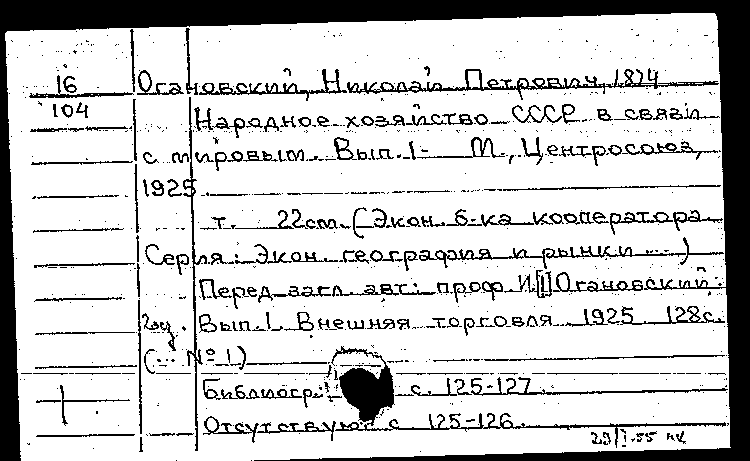 16 Огановский, Николай Петрович, 1874
104 Народное хозяйство СССР в связи
с мировым. Вып. 1- М., Центросоюз,
1925.
т. 22cm. (Экон. б-ка кооператора.
Серия: Экон. география и рынки ...)
Перед загл. авт: проф. И.[!] Огановский.
Вып. 1. Внешняя торговля 1925 128с.
(... № 1)
Библиогр.: с. 125-127.
Отсутствуют с 125-126.
29/I.55